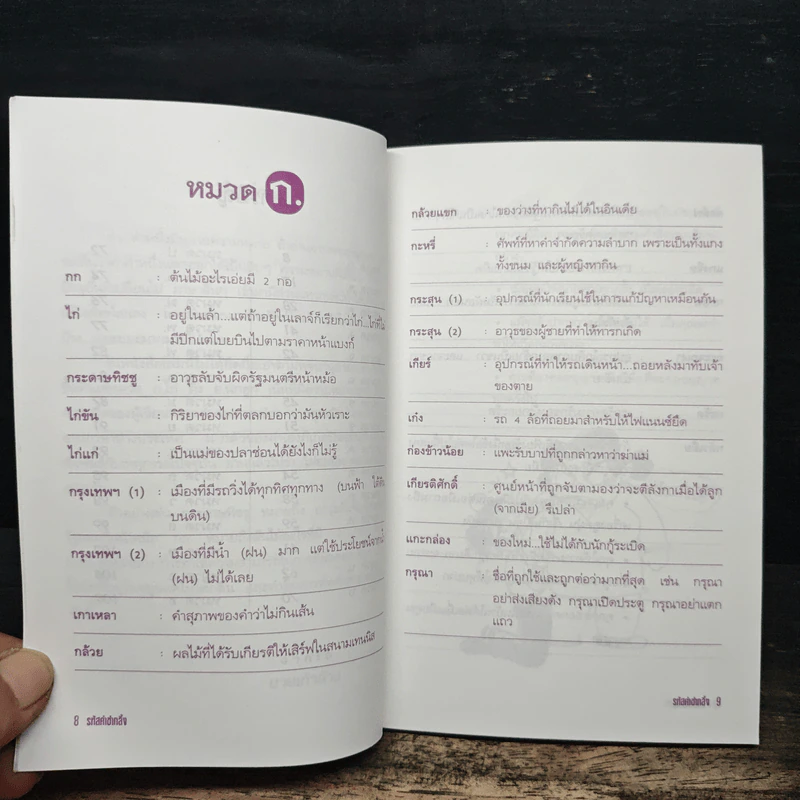 หมวด ก.
กก : ต้นไม้อะไรเอ่ยมี 2 กอ
ไก่ : อยู่ในเล้า...แต่ถ้าอยู่ในเลาจ์ก็เรียกว่าไก่...ไก่ที่ไม่
มีปีกแต่โบยบินไปตามราคาหน้าแบงก์
กระดาษทิชชู : อาวุธลับจับผิดรัฐมนตรีหน้าหม้อ
ไก่ขัน : กิริยาของไก่ที่ตลกบอกว่ามันหัวเราะ
ไก่แก่ : เป็นแม่ของปลาช่อนได้ยังไงก็ไม่รู้
กรุงเทพฯ (1) : เมืองที่มีรถวิ่งได้ทุกทิศทุกทาง (บนฟ้า ใต้ดิน
บนดิน)
กรุงเทพฯ (2) : เมืองที่มีน้ำ (ฝน) มาก แต่ใช้ประโยชน์จากน้ำ
(ฝน) ไม่ได้เลย
เกาเหลา : คำสุภาพของคำว่าไม่กินเส้น
กล้วย : ผลไม้ที่ได้รับเกียรติให้เสิร์ฟในสนามเทนนิส
8 รหัสคำฮาเกลื่อ
กล้วยแขก : ของว่างที่หากินไม่ได้ในอินเดีย
กะหรี่ : ศัพท์ที่หาคำจำกัดความลำบาก เพราะเป็นทั้งแกง
ทั้งขนม และผู้หญิงหากิน
กระสุน (1) : อุปกรณ์ที่นักเรียนใช้ในการแก้ปัญหาเหมือนกัน
กระสุน (2) : อาวุธของผู้ชายที่ทำให้ทารกเกิด
เกียร์ : อุปกรณ์ที่ทำให้รถเดินหน้า...ถอยหลังมาทับเจ้า
ของตาย
เก๋ง : รถ 4 ล้อที่ถอยมาสำหรับให้ไฟแนนซ์ยึด
ก่องข้าวน้อย : แพะรับบาปที่ถูกกล่าวหาว่าฆ่าแม่
เกียรติศักดิ์ : ศูนย์หน้าที่ถูกจับตามองว่าจะตีลังกาเมื่อได้ลูก
(จากเมีย) รึเปล่า
แกะกล่อง : ของใหม่...ใช้ไม่ได้กับนักกู้ระเบิด
กรุณา : ชื่อที่ถูกใช้และถูกต่อว่ามากที่สุด เช่น กรุณา
อย่าส่งเสียงดัง กรุณาเปิดประตู กรุณาอย่าแตก
แถว
9